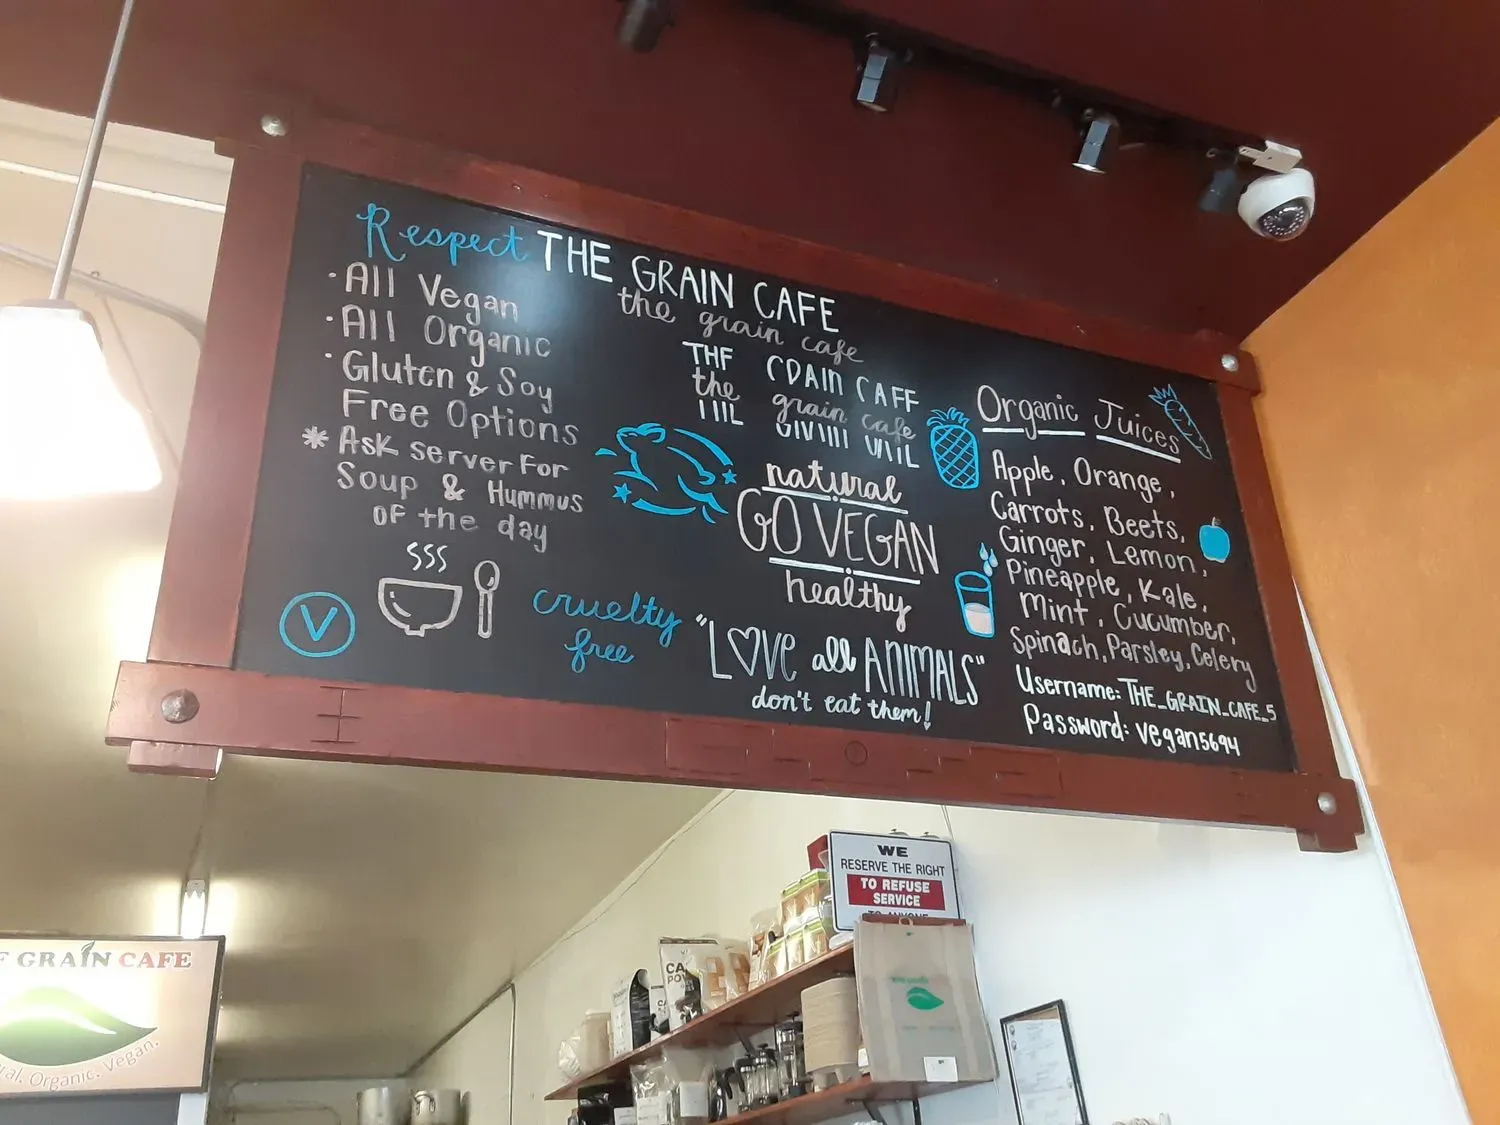 Respect THE GRAIN CAFE
the grain cafe
the grain cafe
· All Vegan
· All Organic
· Gluten & Soy
Free Options
* Ask server For
Soup & Hummus
OF the day
V
cruelty
free
natural
GO VEGAN
healthy
"LOVE all ANIMALS"
don't eat them!
Organic Juices
Apple, Orange,
Carrots, Beets,
Ginger, Lemon,
Pineapple, Kale,
Mint, Cucumber,
Spinach, Parsley, Celery
Username: THE_GRAIN_CAFE_5
Password: vegan5694
WE
RESERVE THE RIGHT
TO REFUSE
SERVICE
TO ANYONE
GRAIN CAFE
Organic. Vegan.